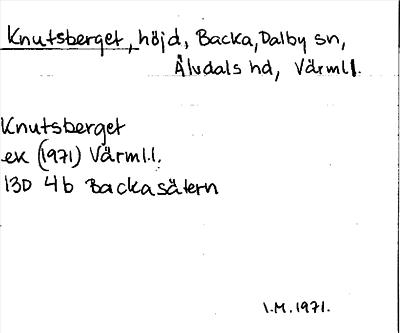 Knutsberget, höjd, Backa, Dalby sn,
Älvdals hd, Värml.l.
Knutsberget
ek (1971) Värml.l.
13D 4b Backasätern
I.M. 1971.